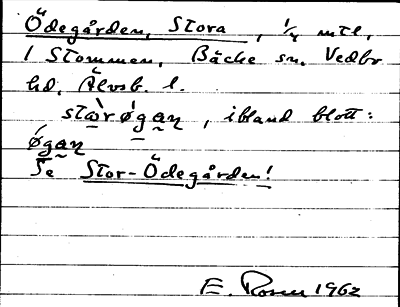 Ödegården, Stora, 1/4 mtl,
1 Stommen, Bäcke sn. Vedbo
hd, Älvsb. l.
ibland blott:
Se Stor-Ödegården!
E. Rosen 1962